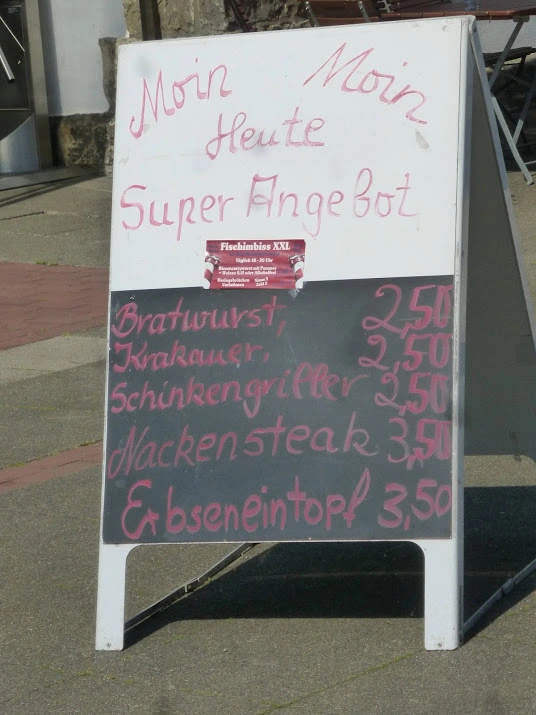 Moin Moin
Heute
Super Angebot
Fischimbiss XXL
Täglich 10 - 20 Uhr
Bratwurst, 2,50
Krakauer, 2,50
Schinkengriller 2,50
Nackensteak 3,50
Erbseneintopf 3,50